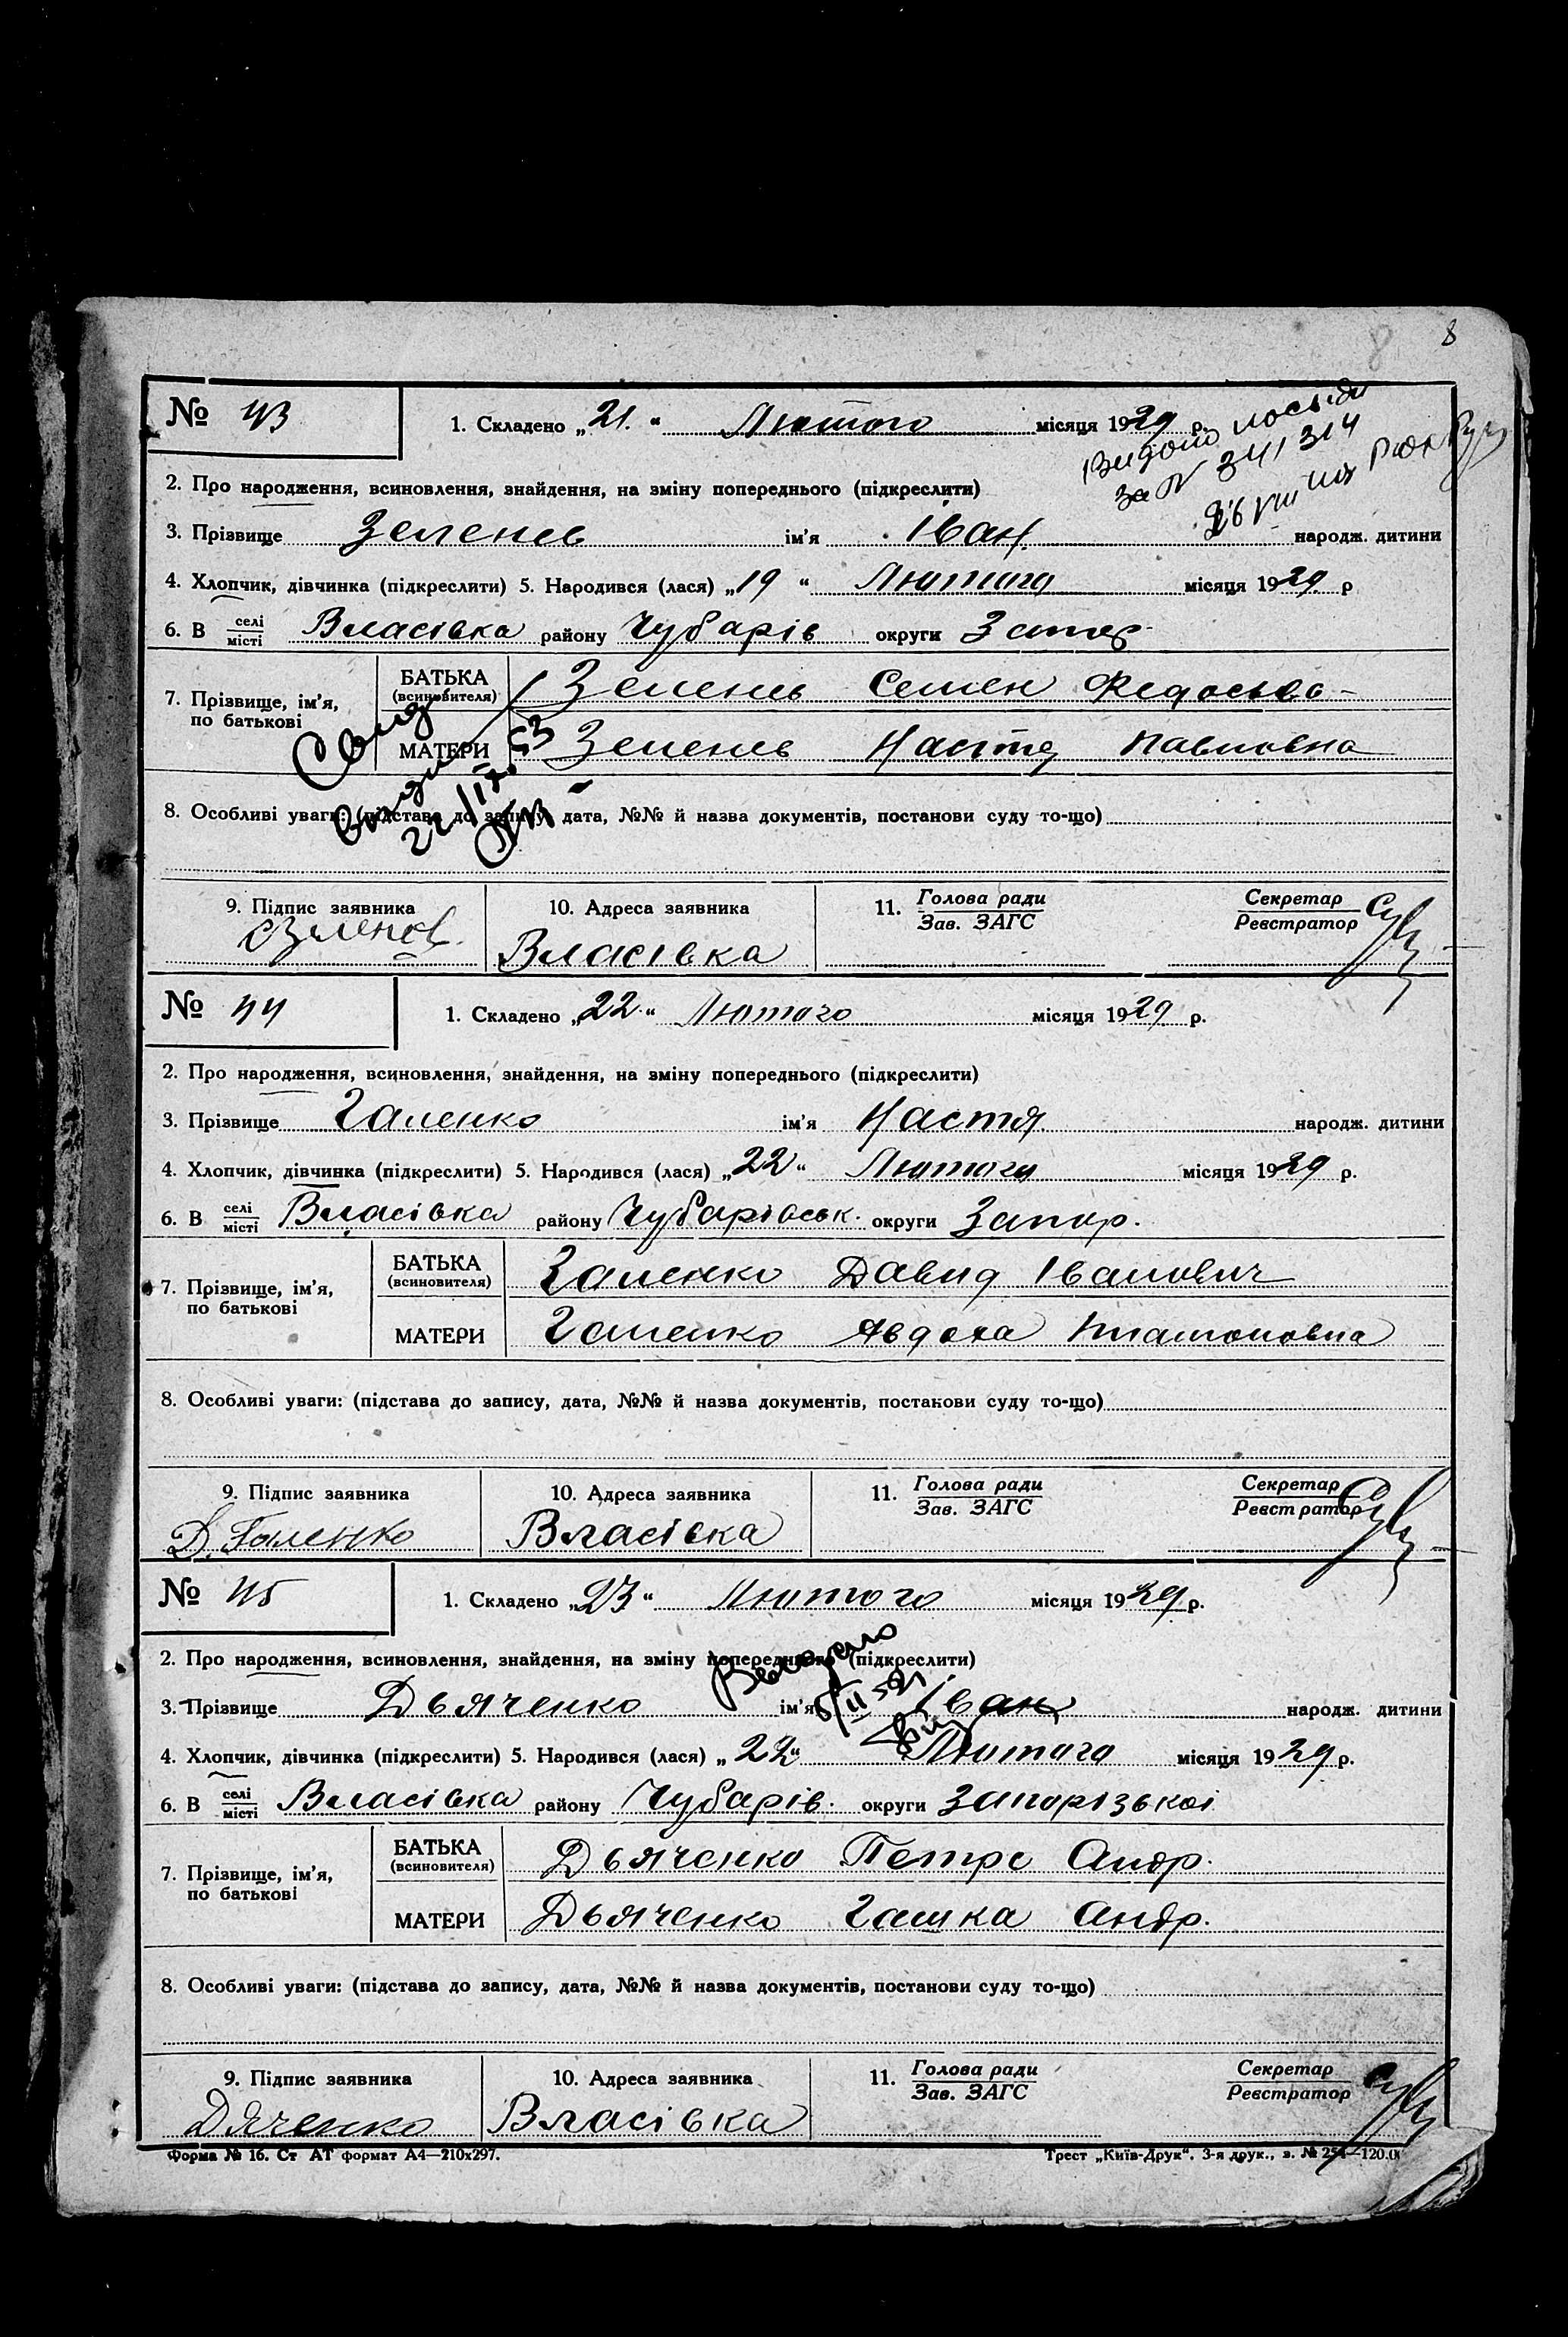 8
№ 43 1. Складено „21.“ Лютого місяця 1929 р.
Видано
за № 341314
2. Про народження, всиновлення, знайдення, на зміну попереднього (підкреслити)
3. Прізвище Зеленев ім'я Іван народж. дитини
4. Хлопчик, дівчинка (підкреслити) 5. Народився (лася) „19“ Лютого місяця 1929 р
6. В селі місті Власівка району Чубарів округи
7. Прізвище, ім'я, по батькові
БАТЬКА (всиновителя) Зеленев Семен
МАТЕРИ Зеленев Настя Павловна
8. Особливі уваги: (підстава до запису, дата, №№ й назва документів, постанови суду то-що)
9. Підпис заявника 10. Адреса заявника 11. Голова ради Зав. ЗАГС Секретар Реєстратор
Власівка
№ 44 1. Складено „22.“ Лютого місяця 1929 р.
2. Про народження, всиновлення, знайдення, на зміну попереднього (підкреслити)
3. Прізвище Галенко ім'я Настя народж. дитини
4. Хлопчик, дівчинка (підкреслити) 5. Народився (лася) „22“ Лютого місяця 1929 р.
6. В селі місті Власівка району Чубарівськ. округи Запор.
7. Прізвище, ім'я, по батькові
БАТЬКА (всиновителя) Галенко Давид Іванович
МАТЕРИ Галенко Явдоха Платоновна
8. Особливі уваги: (підстава до запису, дата, №№ й назва документів, постанови суду то-що)
9. Підпис заявника 10. Адреса заявника 11. Голова ради Зав. ЗАГС Секретар Реєстратор
Д. Галенко Власівка
№ 45 1. Складено „23“ Лютого місяця 1929 р.
2. Про народження, всиновлення, знайдення, на зміну попереднього (підкреслити)
3. Прізвище Дьяченко ім'я Іван народж. дитини
4. Хлопчик, дівчинка (підкреслити) 5. Народився (лася) „22“ Лютого місяця 1929 р.
6. В селі місті Власівка району Чубарів. округи Запорізькоі
7. Прізвище, ім'я, по батькові
БАТЬКА (всиновителя) Дьяченко Петро Андр.
МАТЕРИ Дьяченко Гашка Андр.
8. Особливі уваги: (підстава до запису, дата, №№ й назва документів, постанови суду то-що)
9. Підпис заявника 10. Адреса заявника 11. Голова ради Зав. ЗАГС Секретар Реєстратор
Дяченко Власівка
Форма № 16. Ст АТ формат А4—210х297. Трест „Київ-Друк“. 3-я друк., з. № 254—120.0